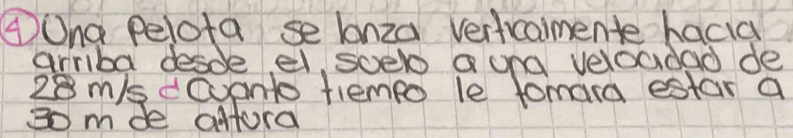 ④ Una Pelota se lanza verticalmente hacia
arriba desde el suelo a una velocidad de
28 m/s ¿Cuanto tiempo le tomara estar a
30 m de altura